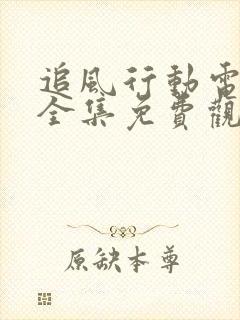 追風行動電
全集免費觀
原缺本尊